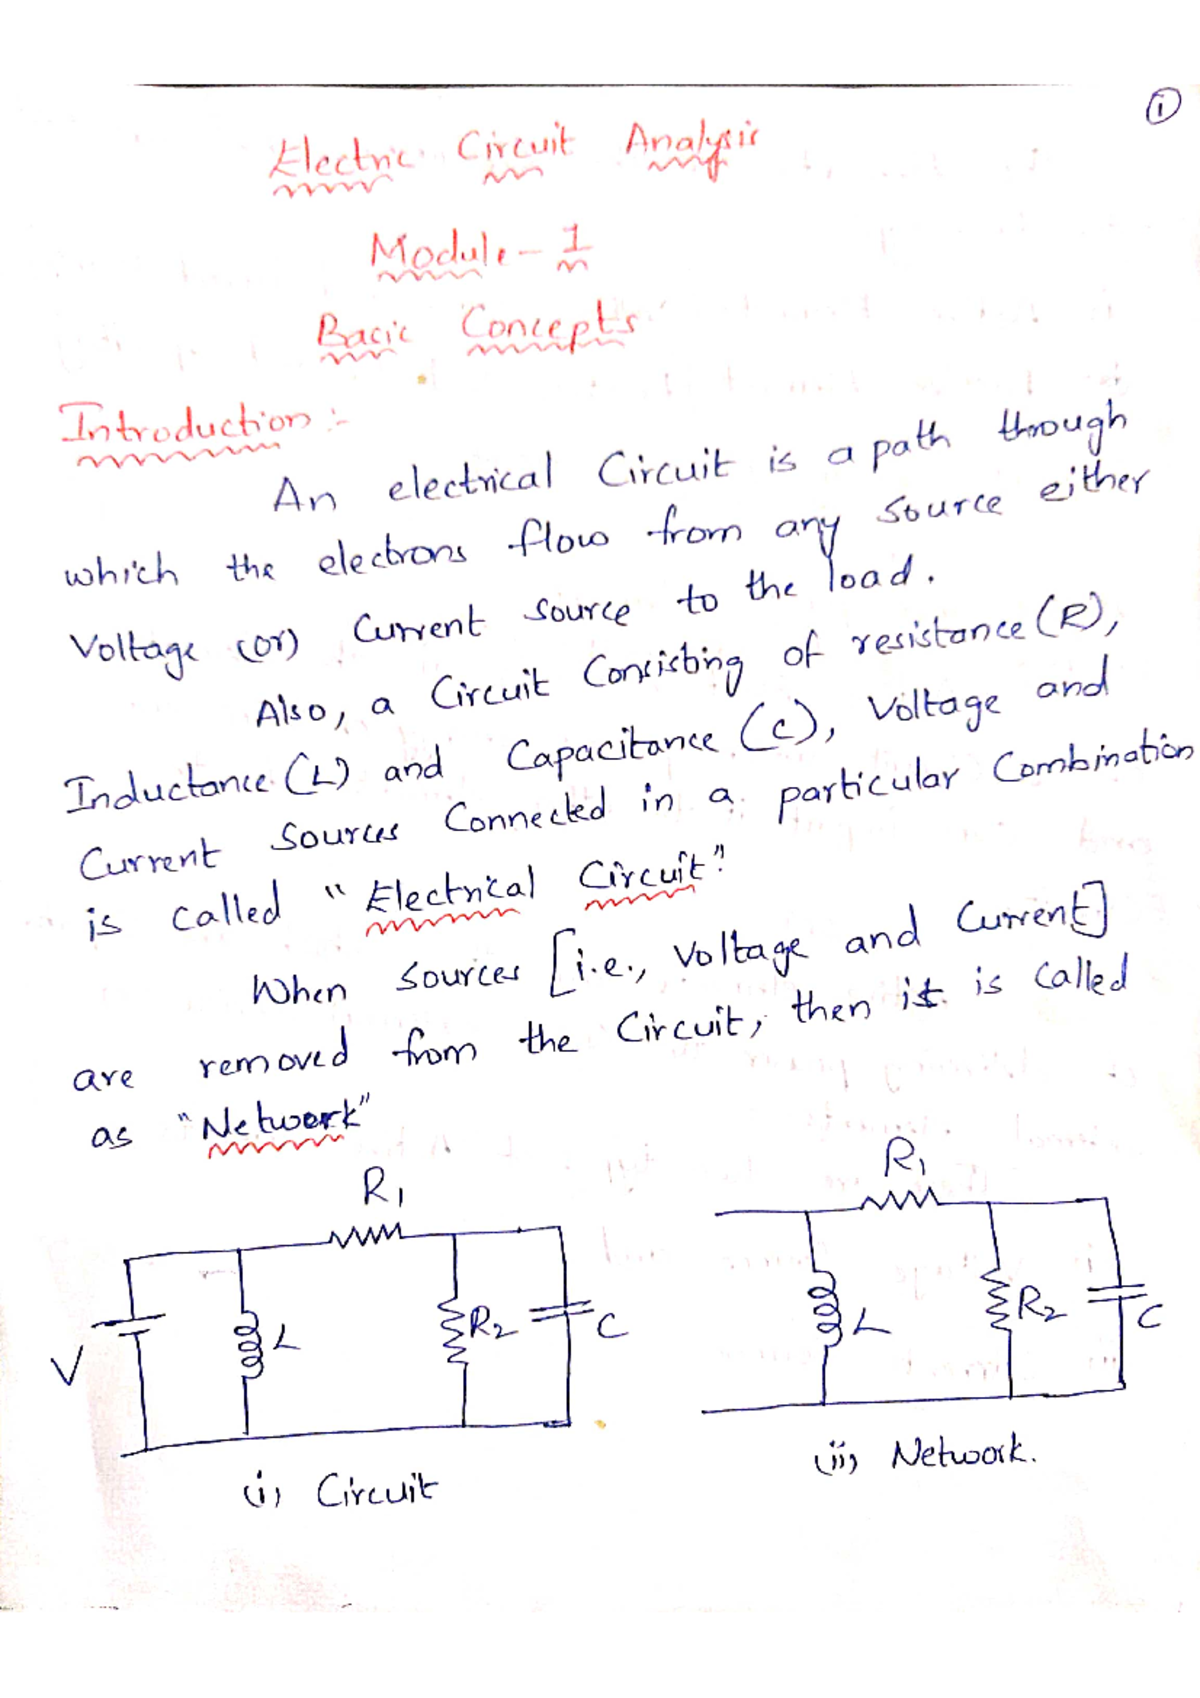 1
Electric Circuit Analysis
Module - 1
Basic Concepts
Introduction :-
An electrical Circuit is a path through
which the electrons flow from any source either
Voltage (or) Current source to the load.
Also, a Circuit Consisting of resistance (R),
Inductance (L) and Capacitance (C), Voltage and
Current Sources Connected in a particular Combination
is called "Electrical Circuit".
When sources [i.e., Voltage and Current]
are removed from the Circuit, then it is called
as "Network"
R1
R1
V
L
R2
C
L
R2
C
(i) Circuit
(ii) Network.